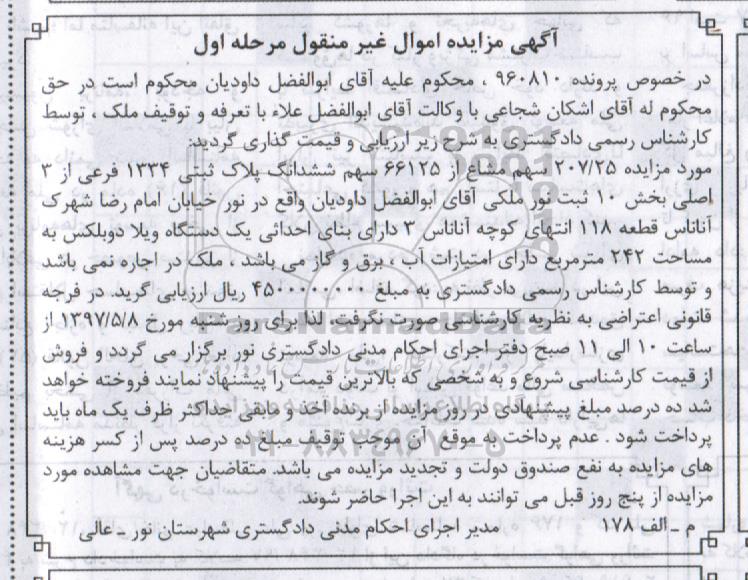 آگهی مزایده اموال غیر منقول مرحله اول
در خصوص پرونده ۹۶۰۸۱۰ ، محکوم علیه آقای ابوالفضل داودیان محکوم است در حق
محکوم له آقای اشکان شجاعی با وکالت آقای ابوالفضل علاء با تعرفه و توقیف ملک ، توسط
کارشناس رسمی دادگستری به شرح زیر ارزیابی و قیمت گذاری گردید:
مورد مزایده ۲۰۷/۲۵ سهم مشاع از ۶۶۱۲۵ سهم ششدانگ پلاک ثبتی ۱۳۳۴ فرعی از ۳
اصلی بخش ۱۰ ثبت نور ملکی آقای ابوالفضل داودیان واقع در نور خیابان امام رضا شهرک
آناناس قطعه ۱۱۸ انتهای کوچه آناناس ۳ دارای بنای احداثی یک دستگاه ویلا دوبلکس به
مساحت ۲۴۲ مترمربع دارای امتیازات آب ، برق و گاز می باشد ، ملک در اجاره نمی باشد
و توسط کارشناس رسمی دادگستری به مبلغ ۴۵۰۰۰۰۰۰۰۰ ریال ارزیابی گرید. در فرجه
قانونی اعتراضی به نظریه کارشناسی صورت نگرفت. لذا برای روز شنبه مورخ ۱۳۹۷/۵/۸ از
ساعت ۱۰ الی ۱۱ صبح دفتر اجرای احکام مدنی دادگستری نور برگزار می گردد و فروش
از قیمت کارشناسی شروع و به شخصی که بالاترین قیمت را پیشنهاد نمایند فروخته خواهد
شد ده درصد مبلغ پیشنهادی در روز مزایده از برنده اخذ و مابقی حداکثر ظرف یک ماه باید
پرداخت شود . عدم پرداخت به موقع آن موجب توقیف مبلغ ده درصد پس از کسر هزینه
های مزایده به نفع صندوق دولت و تجدید مزایده می باشد. متقاضیان جهت مشاهده مورد
مزایده از پنج روز قبل می توانند به این اجرا حاضر شوند.
م ـ الف ۱۷۸ مدیر اجرای احکام مدنی دادگستری شهرستان نور ـ عالی
ParsNamadData
۰۲۱-۸۸۳۴۹۶۷۰-۵